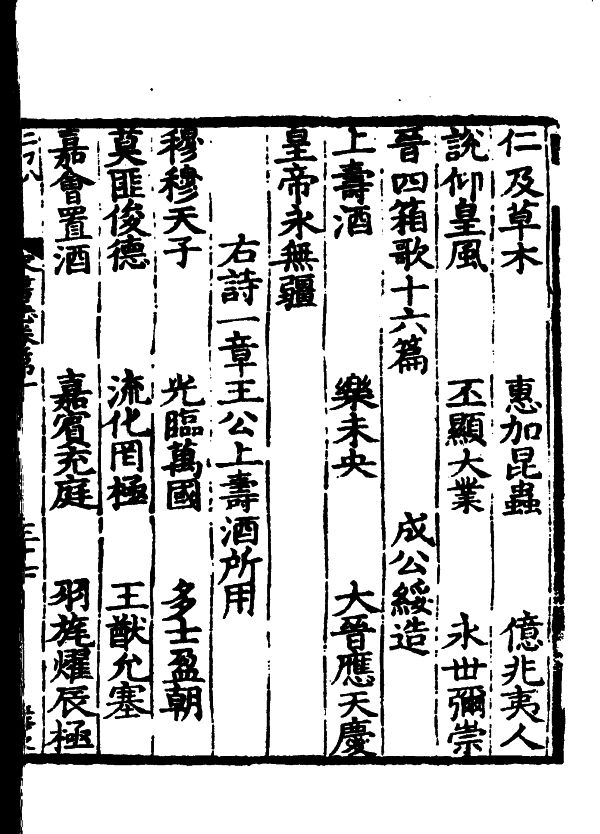 仁及草木　惠加昆蟲　億兆夷人
說仰皇風　丕顯大業　永世彌崇
晉四箱歌十六篇　成公綏造
上壽酒　樂未央　大晉應天慶
皇帝永無疆
右詩一章王公上壽酒所用
穆穆天子　光臨萬國　多士盈朝
莫匪俊德　流化罔極　王猷允塞
嘉會置酒　嘉賓充庭　羽旄燿辰極